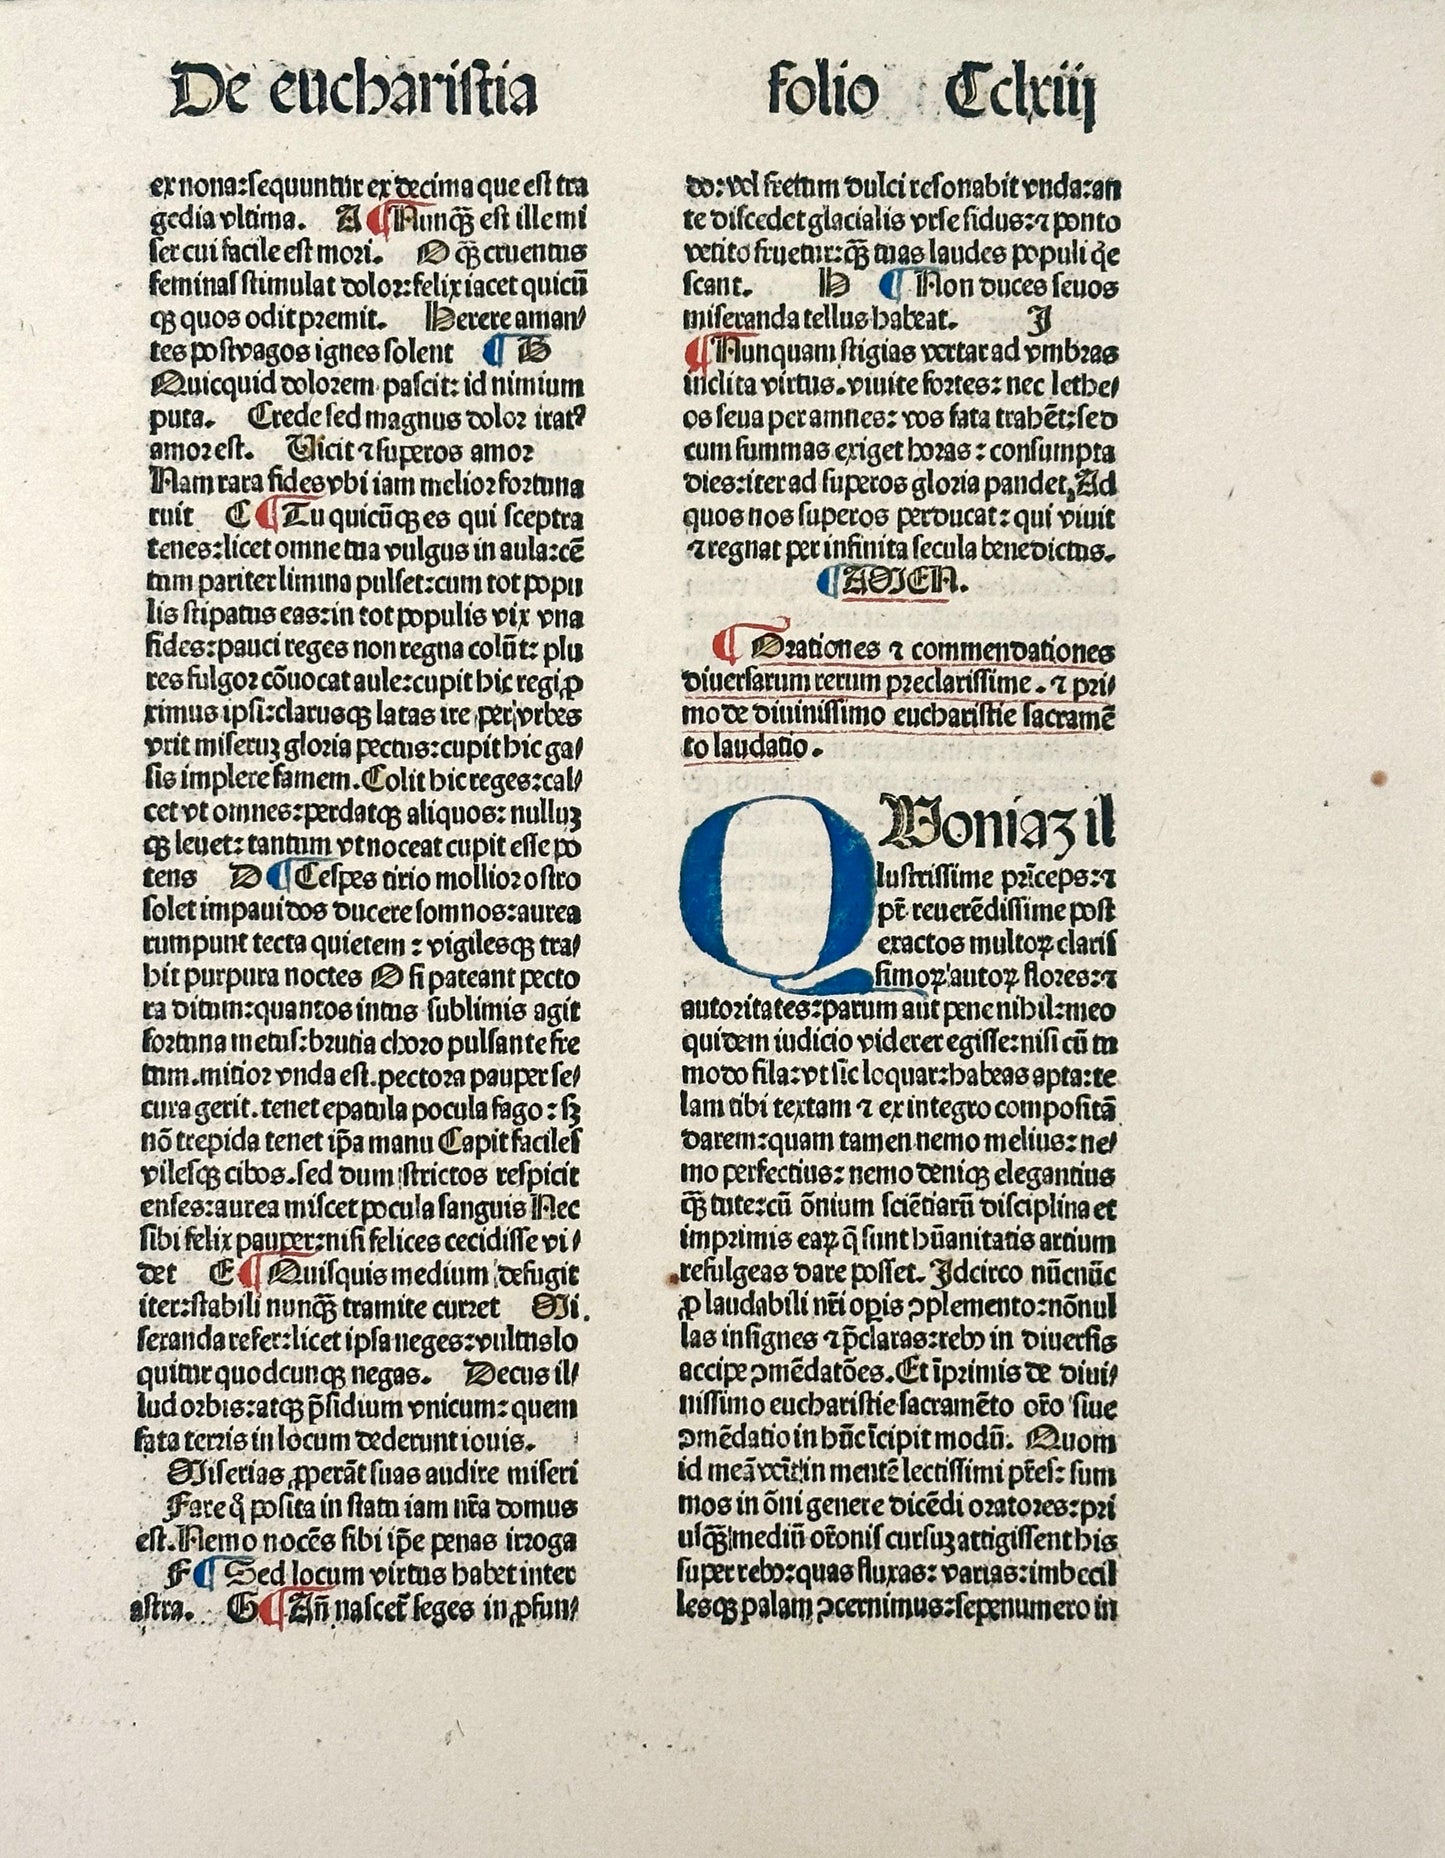 De euchariſtia
folio Cclxiij
ex nona:ſequuntur ex decima que eſt tra
gedia vltima. A ¶Nunqꝫ̃ eſt ille mi
ſer cui facile eſt mori. O qꝫ̃ cruentus
feminaſ ſtimulat dolor:felix iacet quicũ
qꝫ quos odit premit. Herere aman⸗
tes poſt vagos ignes ſolent ¶B
Quicquid dolorem paſcit: id nimium
puta. Crede ſed magnus dolor iratꝰ
amor eſt. Uicit ⁊ ſuperos amor
Nam rara fides vbi iam melior fortuna
ruit C ¶Tu quicũqꝫ es qui ſceptra
tenes:licet omne tua vulgus in aula:cẽ
tum pariter limina pulſet:cum tot popu
lis ſtipatus eas:in tot populis vix vna
fides:pauci reges non regna colũt: plu
res fulgor cõuocat aule:cupit hic regi ꝓ
ximus ipſi:clarusqꝫ latas ire per vrbes
vrit miſeruꝫ gloria pectus:cupit hic ga⸗
ſis implere famem. Colit hic reges:cal⸗
cet vt omnes:perdatqꝫ aliquos: nulluꝫ
qꝫ leuet: tantum vt noceat cupit eſſe po
tens D ¶Ceſpes tirio mollior oſtro
ſolet impauidos ducere ſomnos:aurea
rumpunt tecta quietem : vigilesqꝫ tra⸗
hit purpura noctes O ſi pateant pecto
ra ditum:quantos intus ſublimis agit
fortuna metuſ:brutia choro pulſante fre
tum.mitior vnda eſt.pectora pauper ſe⸗
cura gerit.tenet epatula pocula fago : ſꝫ
nõ trepida tenet ip̃a manu Capit facileſ
vileſqꝫ cibos.ſed dum ſtrictos reſpicit
enſes:aurea miſcet pocula ſanguis Nec
ſibi felix pauper:niſi felices cecidiſſe vi⸗
det E ¶Quiſquis medium defugit
iter:ſtabili nunqꝫ̃ tramite curret Mi.
ſeranda refer:licet ipſa neges:vultus lo
quitur quodcunqꝫ negas. Decus il⸗
lud orbis:atqꝫ p̃ſidium vnicum: quem
fata terris in locum dederunt iouis.
Miſerias ꝓperãt ſuas audire miſeri
Fare q̃ poſita in ſtatu iam nr̃a domus
eſt. Nemo nocẽs ſibi ip̃e penas irroga
F ¶Sed locum virtus habet inter
aſtra. G ¶An̄ naſcet̃ ſeges in ꝓfun⸗
do: vel fretum dulci reſonabit vnda:an
te diſcedet glacialis vrſe ſidus:⁊ ponto
vetito fruetur:qꝫ̃ tuas laudes populi q̇e
ſcant. H ¶Non duces ſeuos
miſeranda tellus habeat. I
¶Nunquam ſtigias vertar ad vmbras
inclita virtus.viuite fortes: nec lethe⸗
os ſeua per amnes: vos fata trahẽt:ſed
cum ſummas exiget horas : conſumpta
dies:iter ad ſuperos gloria pandet, Ad
quos nos ſuperos perducat: qui viuit
⁊ regnat per infinita ſecula benedictus.
¶AMEN.
¶Orationes ⁊ commendationes
diuerſarum rerum preclariſſime . ⁊ pri⸗
mo de diuiniſſimo euchariſtie ſacramẽ
to laudatio.
QUoniaꝫ il
luſtriſſime prĩceps:⁊
pr̃ reuerẽdiſſime poſt
exactos multoꝝ clariſ
ſimoꝝ autoꝝ flores:⁊
autoritates:parum aut pene nihil:meo
quidem iudicio viderer egiſſe:niſi cũ tu
modo fila:vt ſic loquar:habeas apta:te
lam tibi textam ⁊ ex integro compoſitã
darem:quam tamen nemo melius: ne⸗
mo perfectius: nemo deniqꝫ elegantius
qꝫ̃ tute:cũ õnium ſciẽtiarũ diſciplina et
imprimis eaꝝ q̃ ſunt hũanitatis artium
refulgeas dare poſſet. Idcirco nũc nũc
ꝓ laudabili nr̃i oꝑis ↄplemento:nõnul
las inſignes ⁊ p̃claras:rebꝰ in diuerſis
accipe ↄmẽdatões. Et ĩprimis de diui⸗
niſſimo euchariſtie ſacramẽto or̃o ſiue
ↄmẽdatio in hũc ĩcipit modũ. Quom
id meã vẽĩt in mentẽ lectiſſimi pr̃eſ: ſum
mos in õni genere dicẽdi oratores:pri
uſqꝫ̃ mediũ or̃oniſ curſuꝫ attigiſſent his
ſuper rebꝰ:quas fluxas: varias: imbecil
lesqꝫ palam ↄcernimus:ſepenumero in